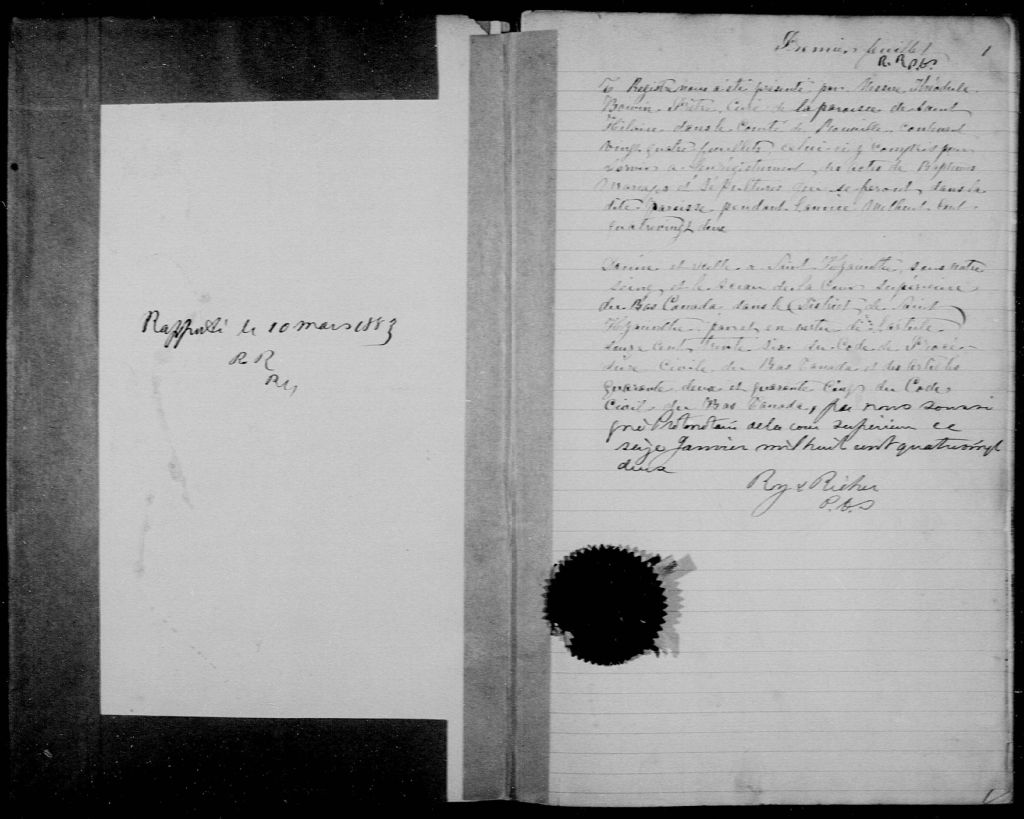 Rapporté le 10 mars 1883
R. R
P.C.S
Premier feuillet 1
R. R P.C.S.
Le Registre nous a été présenté par Messire Théodule
Boivin Prêtre, Curé de la paroisse de Saint
Hilaire dans le Comté de Rouville contenant
vingt quatre feuillets celui-ci y compris pour
servir à l'enrégistrement des actes de Baptêmes
Mariages et Sépultures qui se feront dans la
dite Paroisse pendant l'année mil huit cent
quatrevingt deux
Donné et scellé à Saint Hyacinthe, sous notre
seing et le sceau de la Cour Supérieure
du Bas Canada, dans le District de Saint
Hyacinthe en vertu de l'article
douze cent trente six du Code de Procé-
dure Civile du Bas Canada et des articles
quarante deux et quarante cinq du Code
Civil du Bas Canada, par nous soussi
gné Protonotaire de la cour supérieure ce
seize Janvier mil huit cent quatrevingt
deux
Roy & Richer
P.C.S